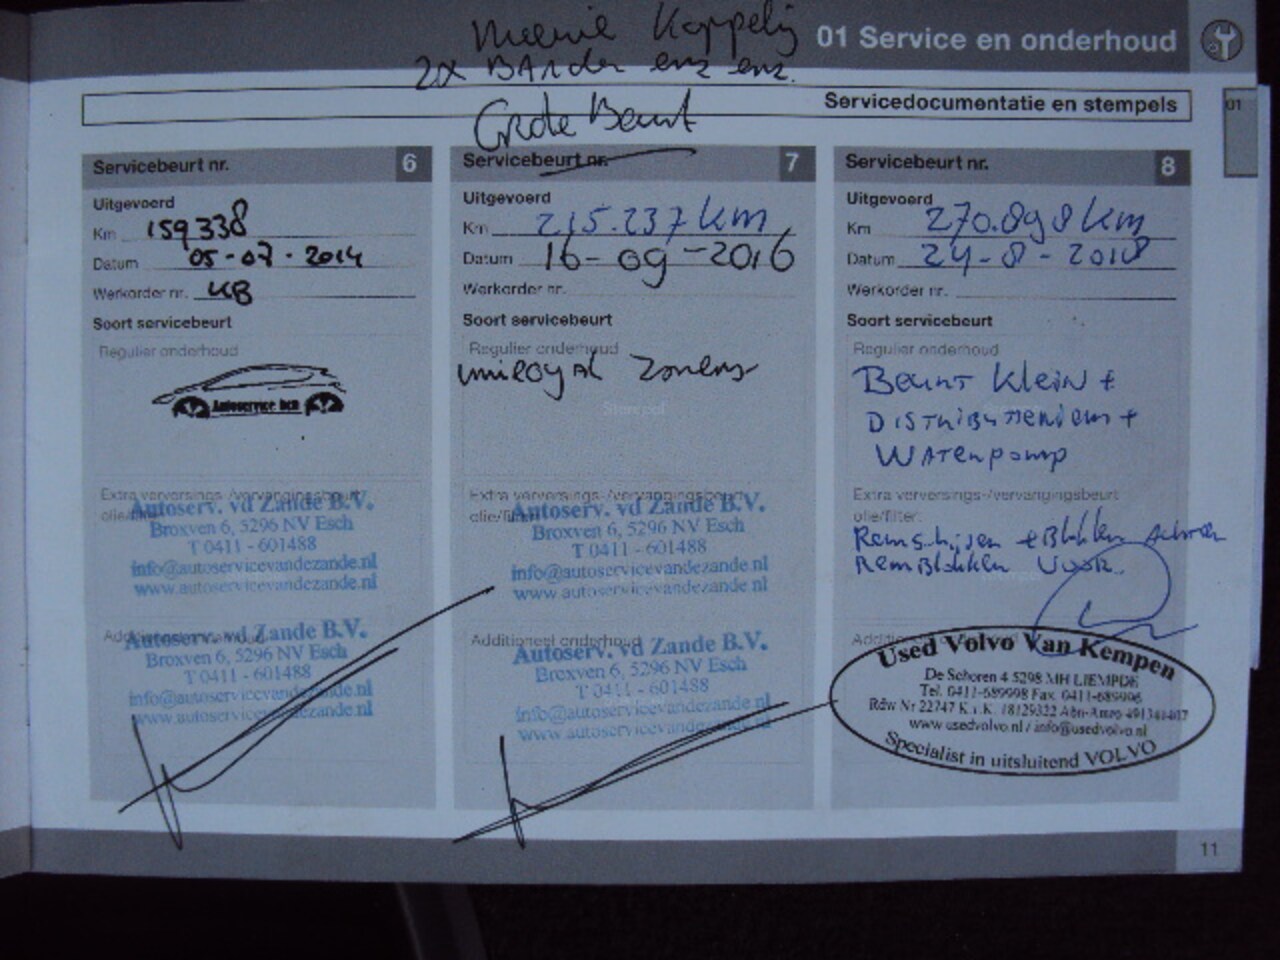 Koppelig
2x BAnden enz enz.
01 Service en onderhoud
Servicedocumentatie en stempels
01
Grote Beurt
Servicebeurt nr. 6
Uitgevoerd
Km 159338
Datum 05-07-2014
Werkorder nr. KB
Soort servicebeurt
Regulier onderhoud
Autoservice bcn
Extra verversings-/vervangingsbeurt
olie/filter:
Autoserv. vd Zande B.V.
Broxven 6, 5296 NV Esch
T 0411 - 601488
info@autoservicevandezande.nl
www.autoservicevandezande.nl
Autoserv. vd Zande B.V.
Broxven 6, 5296 NV Esch
T 0411 - 601488
info@autoservicevandezande.nl
www.autoservicevandezande.nl
Servicebeurt nr. 7
Uitgevoerd
Km 215.237 km
Datum 16-09-2016
Werkorder nr.
Soort servicebeurt
Regulier onderhoud
Stempel
Extra verversings-/vervangingsbeurt
olie/filter:
Autoserv. vd Zande B.V.
Broxven 6, 5296 NV Esch
T 0411 - 601488
info@autoservicevandezande.nl
www.autoservicevandezande.nl
Additioneel onderhoud
Autoserv. vd Zande B.V.
Broxven 6, 5296 NV Esch
T 0411 - 601488
info@autoservicevandezande.nl
www.autoservicevandezande.nl
Servicebeurt nr. 8
Uitgevoerd
Km 270.898 km
Datum 24-8-2018
Werkorder nr.
Soort servicebeurt
Regulier onderhoud
Beurt Klein +
Distributieriem +
Waterpomp
Extra verversings-/vervangingsbeurt
olie/filter:
Remschijven + Blokken Achter
RemBlokken Voor.
Used Volvo Van Kempen
De Schoren 4 5298 MH LIEMPDE
Tel. 0411-689998 Fax. 0411-689996
Rdw Nr 22747 K.v.K. 18129322 Abn-Amro 491341407
www.usedvolvo.nl / info@usedvolvo.nl
Specialist in uitsluitend VOLVO
11